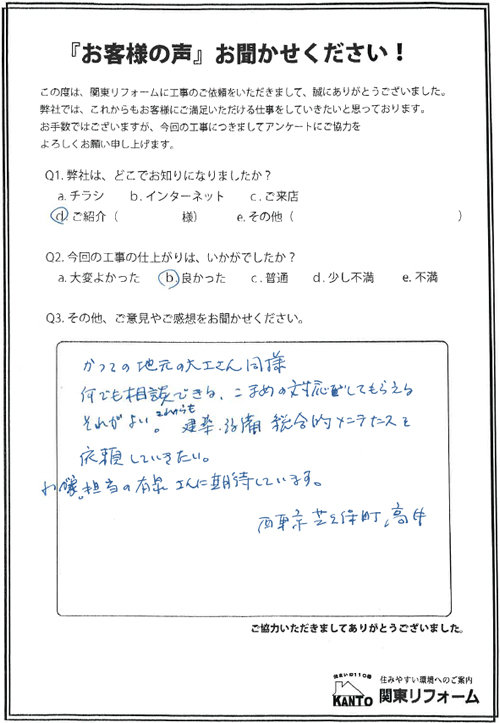 『お客様の声』お聞かせください！
この度は、関東リフォームに工事のご依頼をいただきまして、誠にありがとうございました。
弊社では、これからもお客様にご満足いただける仕事をしていきたいと思っております。
お手数ではございますが、今回の工事につきましてアンケートにご協力を
よろしくお願い申し上げます。
Q1. 弊社は、どこでお知りになりましたか？
a. チラシ b. インターネット c. ご来店
d. ご紹介（ 様） e. その他（ ）
Q2. 今回の工事の仕上がりは、いかがでしたか？
a. 大変よかった b. 良かった c. 普通 d. 少し不満 e. 不満
Q3. その他、ご意見やご感想をお聞かせください。
かつての地元の大工さん同様
何でも相談できる、こまめの対応をしてもらえる
それがよい。これからも建築・設備総合的メンテナンスを
依頼していきたい。
担当の有泉さんに期待しています。
西東京芝久保町、高
ご協力いただきましてありがとうございました。
住まいの110番
KANTO
住みやすい環境へのご案内
関東リフォーム